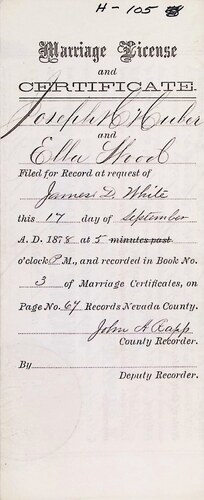 H - 105
Marriage License
and
CERTIFICATE.
Joseph H Huber
and
Ella Wood
Filed for Record at request of
James D. White
this 17 day of September
A. D. 1878 at 5 minutes past
o'clock P M., and recorded in Book No.
3 of Marriage Certificates, on
Page No. 67 Records Nevada County.
John A. Rapp
County Recorder.
By
Deputy Recorder.